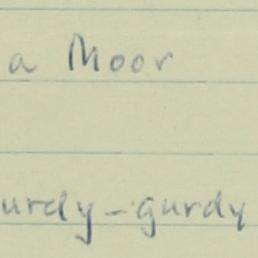 a Moor
urdy-gurdy